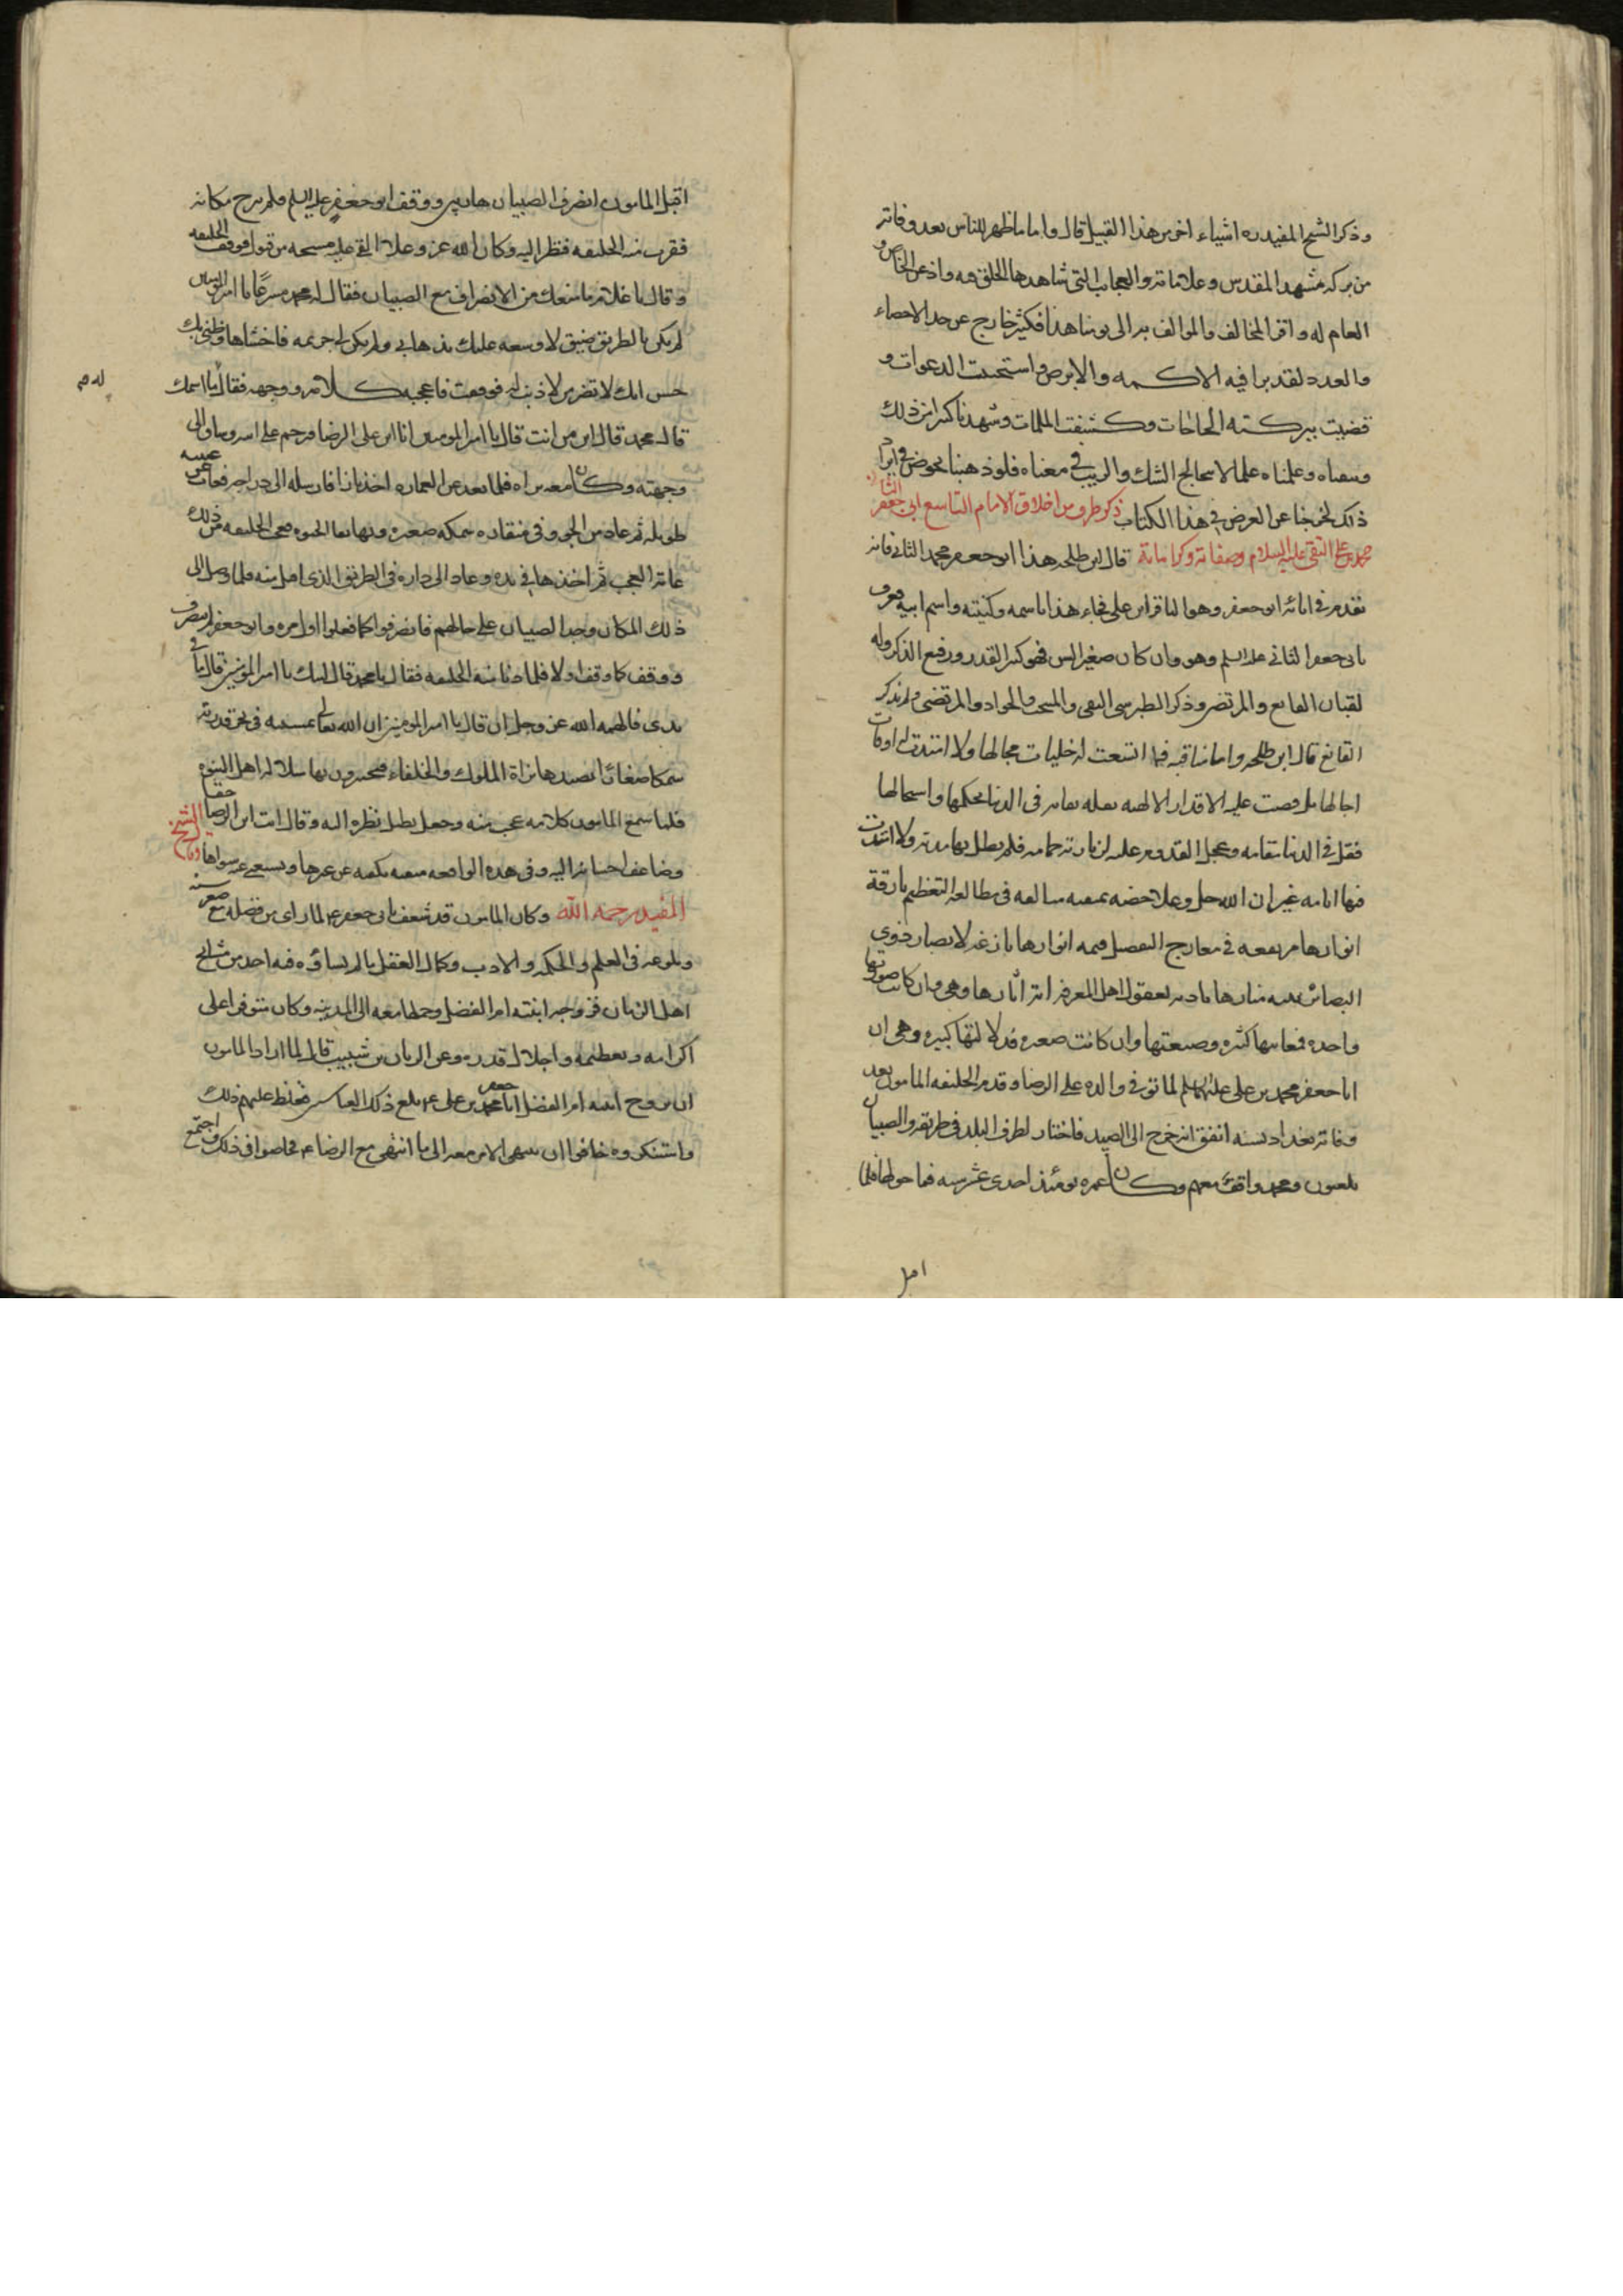 وذكر الشيخ المفيد ره اشياء اخر من هذا القبيل قال واما ما ظهر للناس بعد وفاته
من بركة مشهده المقدس وعلاماته والعجايب التي شاهدها الخلق فيه واذعن الخاص و
العام له واقر المخالف والموالف به الى يومنا هذا فكثير خارج عن حد الاحصاء
والعدد لقد برا فيه الاكمه والابرص واستجيبت الدعوات و
قضيت ببركته الحاجات وكشفت الملمات وشهدنا كثيرا من ذلك
وعلمناه علما لا يتخالج الشك والريب في معناه فلو ذهبنا نخوض في ايراد
ذلك لخرجنا عن الغرض في هذا الكتاب ذكر طرف من اخلاق الامام التاسع ابي جعفر الثاني
محمد بن علي التقي عليه السلام وصفاته وكراماته قال ابن طلحه هذا ابو جعفر محمد الثاني فانه
تقدم في ابائه ابو جعفر وهو الباقر ابن علي فجاء هذا باسمه وكنيته واسم ابيه فعرف
بابي جعفر الثاني عليه السلم وهو وان كان صغير السن فهو كبير القدر ورفيع الذكر وله
لقبان القانع والمرتضى وذكر الطبرسي التقي والمنتجب والجواد والمرتضى ولم يذكر
القانع قال ابن طلحه واما مناقبه فما اتسعت له حلبات مجالها ولا امتدت له اوقات
اجالها بل قضت عليه الاقدار الالهيه بقله بقائه في الدنيا بحكمها واسجالها
فقل في الدنيا مقامه وعجل القدوم عليه لزيارته حمامه فلم تطل بها مدته ولا امتدت
فيها ايامه غير ان الله جل وعلا خصه بمنقبه متالقه في مطالع التعظيم بارقة
انوارها مرتفعه في معارج التفضيل قيمه اقدارها بازغه لابصار ذوي
البصائر بينه منارها باديه لعقول اهل المعرفه اثارها وهي وان كانت صورتها
واحده فمعانيها كثيره وصيغتها وان كانت صغيره فدلالتها كبيره وهي ان
ابا جعفر محمد بن علي عليهما السلم لما توفي والده علي الرضا وقدم الخليفه المامون بعد
وفاته بغداد بسنه اتفق انه خرج الى الصيد فاجتاز بطرف البلد في طريقه والصبيان
يلعبون ومحمد واقف معهم وكان عمره يومئذ احدى عشر سنه فما حولها فلما
اقبل
اقبل المامون انصرف الصبيان هاربين ووقف ابو جعفر عليه السلم فلم يبرح مكانه
فقرب منه الخليفه فنظر اليه وكان الله عز وعلا القى عليه مسحه من قبول فوقف الخليفه
وقال يا غلام ما منعك من الانصراف مع الصبيان فقال له محمد مسرعا يا امير المومنين
لم يكن بالطريق ضيق لاوسعه عليك بذهابي ولم يكن لي جريمه فاخشاها وظني بك
حسن انك لا تضر من لا ذنب له فوقفت فاعجبه كلامه ووجهه فقال له ما اسمك
قال محمد قال ابن من انت قال يا امير المومنين انا ابن علي الرضا فترحم على ابيه وساق الى
وجهته وكان معه بزاه فلما بعد عن العماره اخذ بازا فارسله الى دراجه فغاب عن عينه
طويلا ثم عاد من الجو وفي منقاده سمكه صغيره وبها بقايا الحيوه فعجب الخليفه من ذلك
غايه العجب ثم اخذها في يده وعاد الى داره في الطريق الذي اقبل منه فلما وصل الى
ذلك المكان وجد الصبيان على حالهم فانصرفوا كما فعلوا اول مره وابو جعفر لم ينصرف
ووقف كما وقف اولا فلما دنا منه الخليفه فقال يا محمد قال لبيك يا امير المومنين قال ما في
يدي فالهمه الله عز وجل ان قال يا امير المومنين ان الله تعالى خلق بمشيته في بحر قدرته
سمكا صغارا تصيدها بزاة الملوك والخلفاء فيختبرون بها سلاله اهل النبوه
فلما سمع المامون كلامه عجب منه وجعل يطيل نظره اليه وقال انت ابن الرضا حقا
وضاعف احسانه اليه وفي هذه الواقعه منقبه تكفيه عن غيرها ويستغني عن سواها وقال الشيخ
المفيد رحمه الله وكان المامون قد شغف بابي جعفر ع لما راى من فضله مع صغر سنه
وبلوغه في العلم والحكمه والادب وكمال العقل ما لم يساوه فيه احد من مشايخ
اهل الزمان فزوجه ابنته ام الفضل وحملها معه الى المدينه وكان متوفرا على
اكرامه وتعظيمه واجلال قدره وعن الريان بن شبيب قال لما اراد المامون
ان يزوج ابنته ام الفضل ابا جعفر محمد بن علي ع بلغ ذلك العباسيين فغلظ عليهم ذلك
واستنكروه وخافوا ان ينتهي الامر معه الى ما انتهى مع الرضا ع فخاضوا في ذلك واجتمع